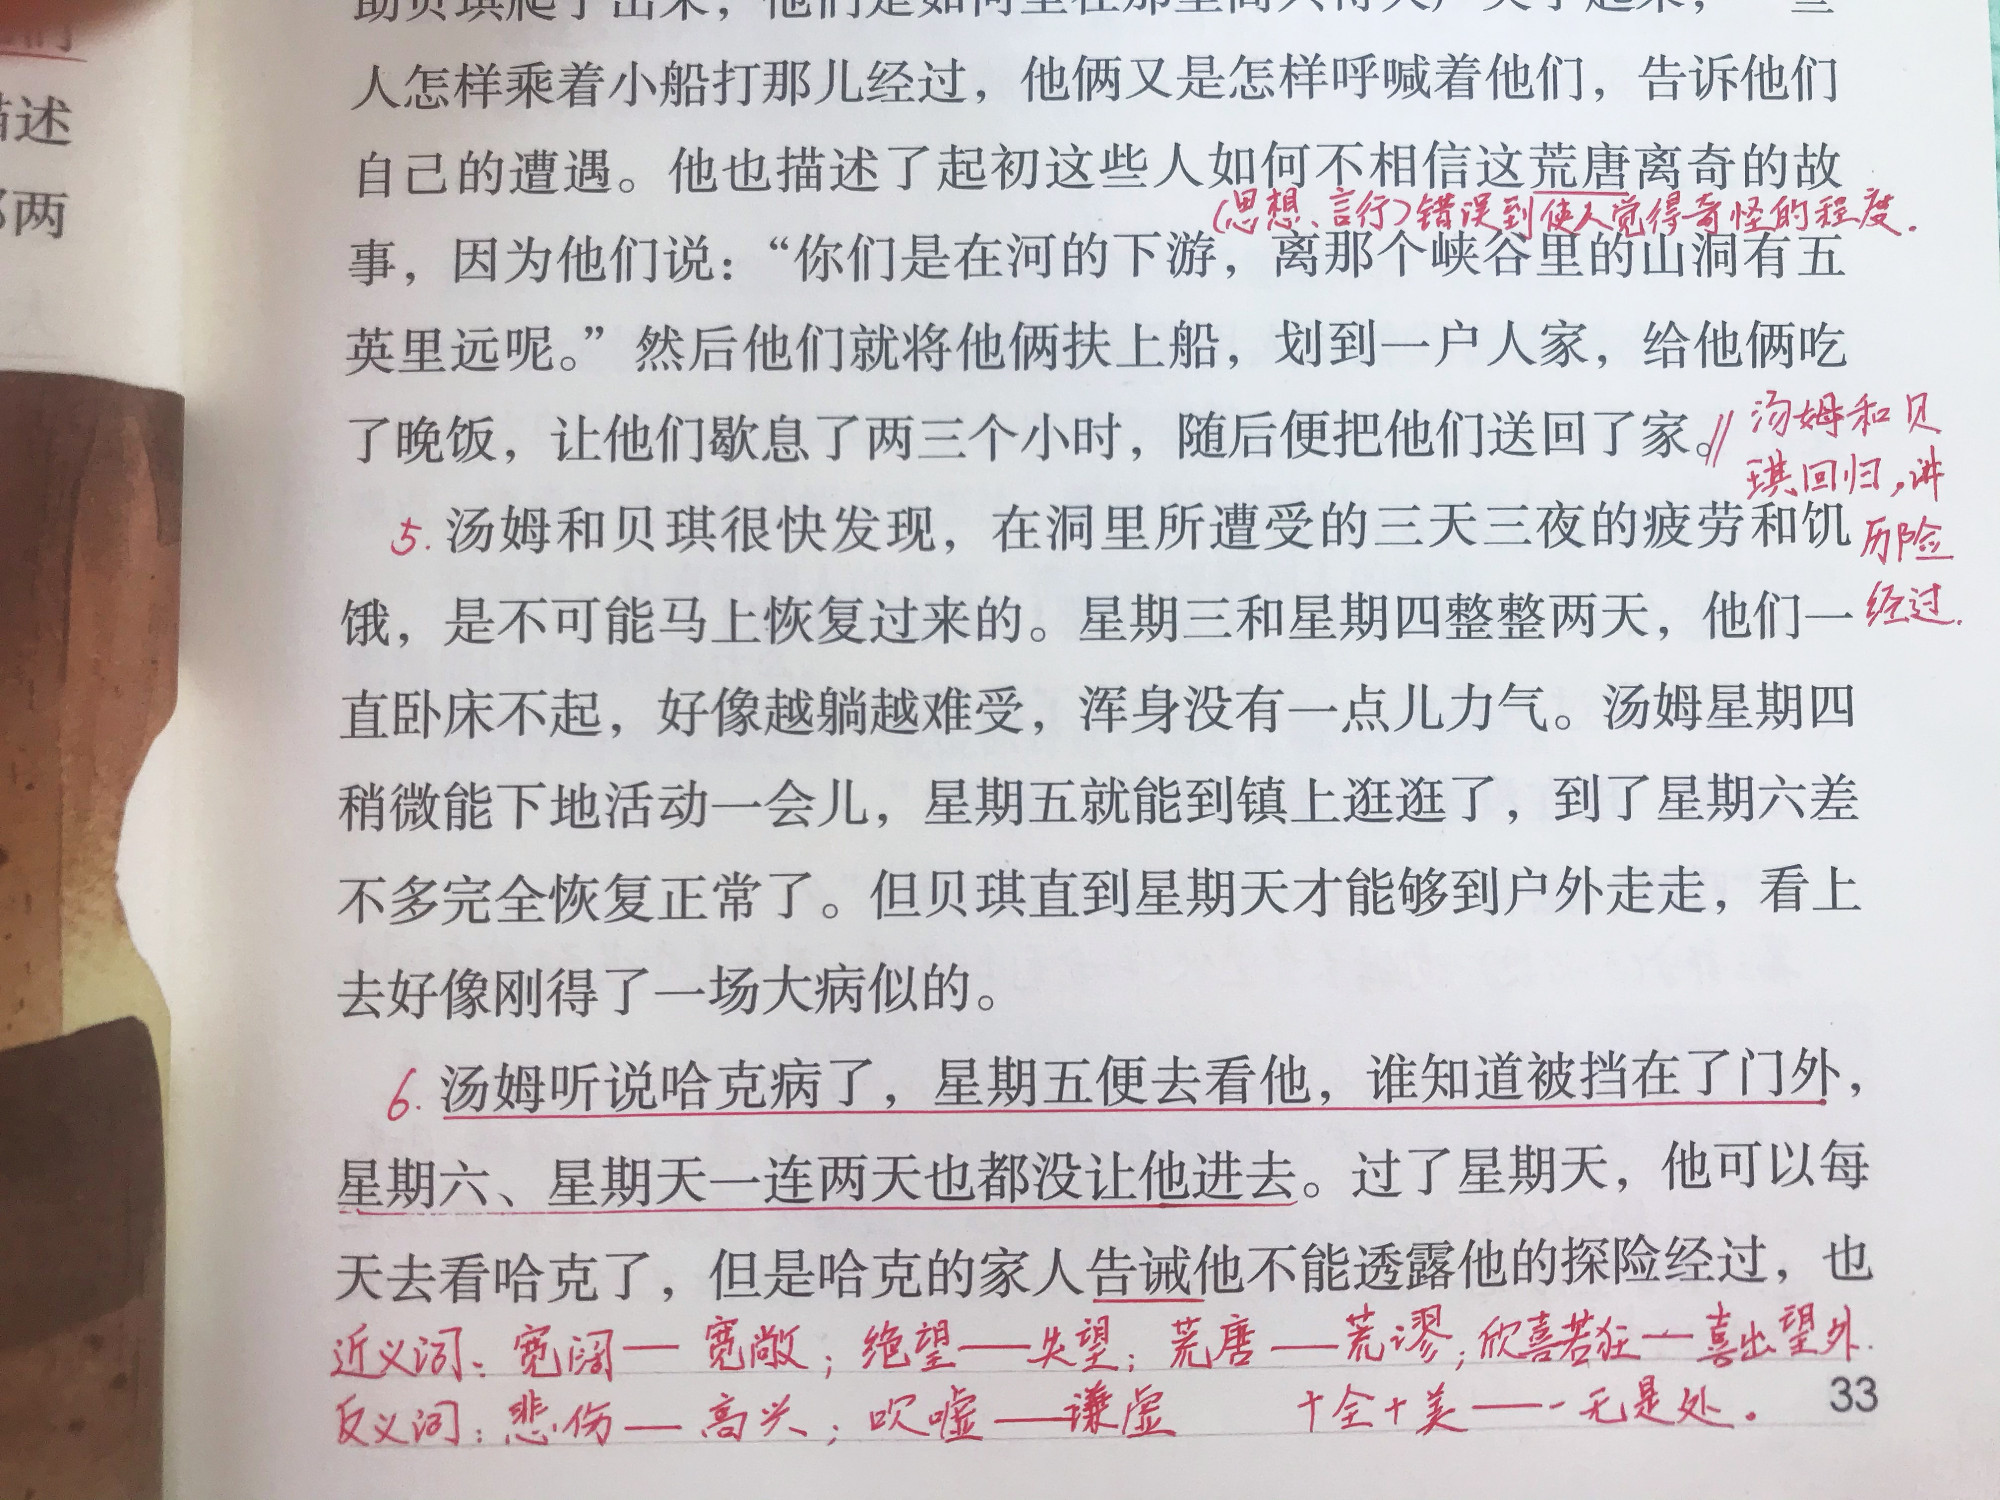 人怎样乘着小船打那儿经过，他俩又是怎样呼喊着他们，告诉他们
描述
自己的遭遇。他也描述了起初这些人如何不相信这荒唐离奇的故
(思想、言行)错误到使人觉得奇怪的程度.
两
事，因为他们说：“你们是在河的下游，离那个峡谷里的山洞有五
英里远呢。”然后他们就将他俩扶上船，划到一户人家，给他俩吃
了晚饭，让他们歇息了两三个小时，随后便把他们送回了家。
汤姆和贝
琪回归，讲
历险
经过.
5.汤姆和贝琪很快发现，在洞里所遭受的三天三夜的疲劳和饥
饿，是不可能马上恢复过来的。星期三和星期四整整两天，他们一
直卧床不起，好像越躺越难受，浑身没有一点儿力气。汤姆星期四
稍微能下地活动一会儿，星期五就能到镇上逛逛了，到了星期六差
不多完全恢复正常了。但贝琪直到星期天才能够到户外走走，看上
去好像刚得了一场大病似的。
6.汤姆听说哈克病了，星期五便去看他，谁知道被挡在了门外，
星期六、星期天一连两天也都没让他进去。过了星期天，他可以每
天去看哈克了，但是哈克的家人告诫他不能透露他的探险经过，也
近义词：宽阔——宽敞；绝望——失望；荒唐——荒谬；欣喜若狂——喜出望外.
反义词：悲伤——高兴；吹嘘——谦虚 十全十美——一无是处.
33